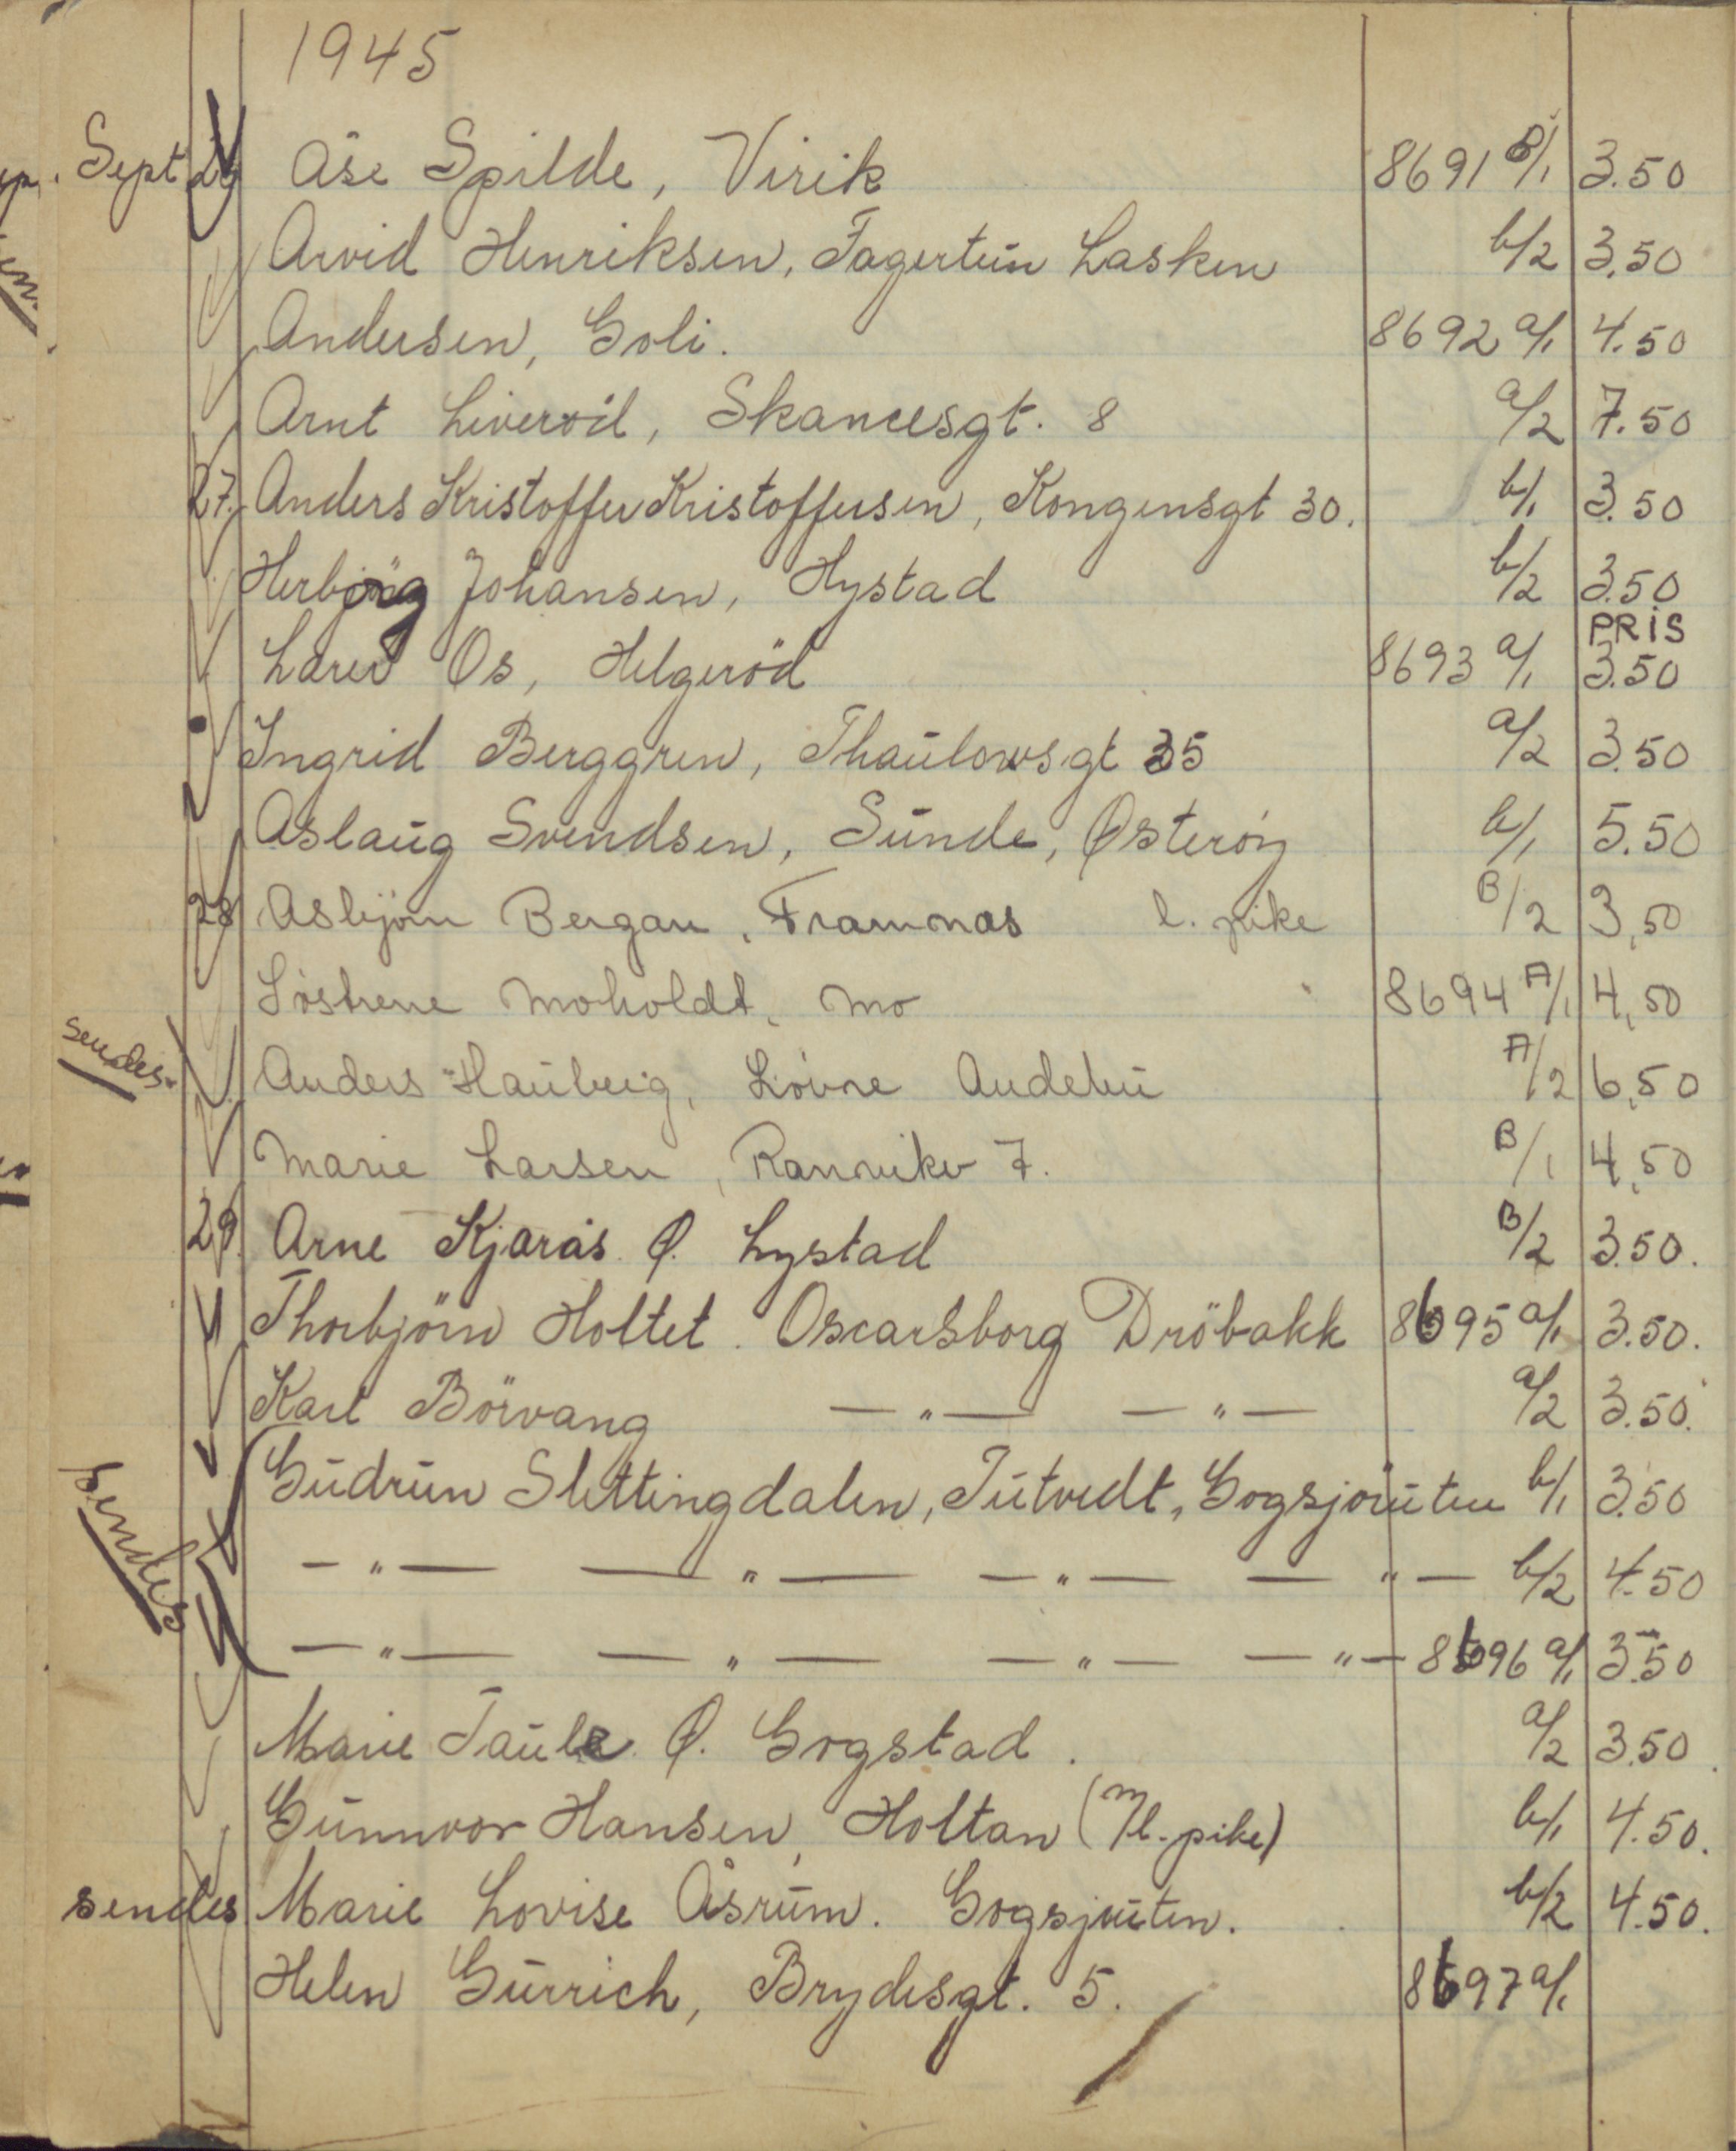 1945
Sept 26 Åse Spilde, Virik 8691 B/1 3.50
Arvid Henriksen, Fagertun Lasken b/2 3.50
Andersen, Goli. 8692 a/1 4.50
Arnt Liveröd, Skancesgt. 8 a/2 7.50
27. Anders Kristoffer Kristoffersen, Kongensgt 30. b/1 3.50
Herbjörg Johansen, Hystad b/2 3.50
PRIS
Os, Helgeröd 8693 a/1 3.50
Ingrid Berggren, Thaulowsgt 35 a/2 3.50
Aslaug Svendsen, Sunde, Østeröy b/1 5.50
28 Asbjörn Bergan, Framnæs l. pike B/2 3,50
Söstrene Moholdt, Mo 8694 A/1 4,50
sendes. Anders Hauberg, Lövne Andebu A/2 6,50
Marie Larsen, Rannvikv 7. B/1 4,50
29. Arne Kjærås Ø. Lystad B/2 3.50.
Thorbjörn Holtet. Oscarsborg Dröbakk 8695 a/1 3.50.
Karl Börvang — " — — " — a/2 3.50.
sendes Gudrun Slettingdalen, Jutvedt, Gogsjöruten b/1 3.50
— " — — " — — " — — " — b/2 4.50
— " — — " — — " — — " — 8696 a/1 3.50
Marie Taule Ø. Gogstad. a/2 3.50
Gunnvor Hansen, Holtan (m/l. pike) b/1 4.50.
sendes Marie Lovise Åsrum. Gogsjruten. b/2 4.50.
Helen Gurrich, Brydesgt. 5. 8697 a/1